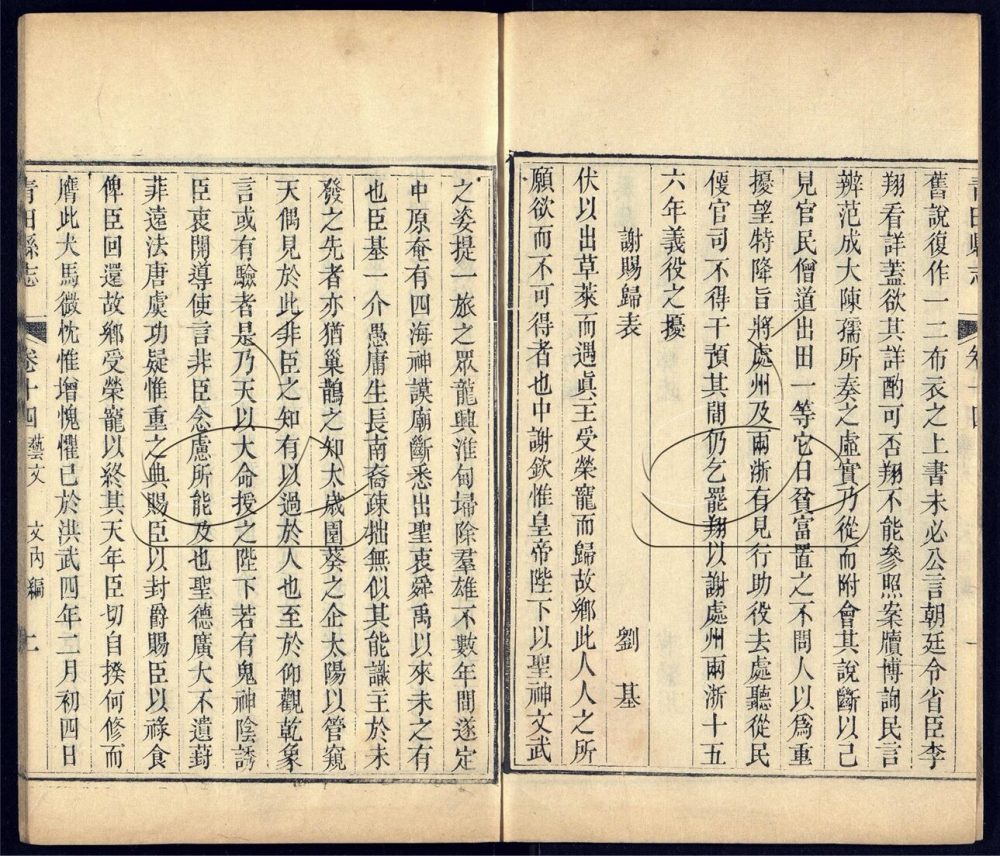 青田縣志 卷十四
舊說復作一二布衣之上書未必公言朝廷令省臣李
翔看詳蓋欲其詳酌可否翔不能參照案牘博詢民言
辨范成大陳孺所奏之虛實乃從而附會其說斷以己
見官民僧道出田一等它日貧富置之不問人以爲重
擾望特降旨將處州及兩浙有見行助役去處聽從民
便官司不得干預其間仍乞罷翔以謝處州兩浙十五
六年義役之擾
謝賜歸表 劉基
伏以出草萊而遇眞主受榮寵而歸故鄉此人人之所
願欲而不可得者也中謝欽惟皇帝陛下以聖神文武
之姿提一旅之眾龍興淮甸埽除羣雄不數年間遂定
中原奄有四海神謨廟斷悉出聖衷舜禹以來未之有
也臣基一介愚庸生長南裔疎拙無似其能識主於未
發之先者亦猶巢鵲之知太歲園葵之企太陽以管窺
天偶見於此非臣之知有以過於人也至於仰觀乾象
言或有驗者是乃天以大命授之陛下若有鬼神陰誘
臣衷開導使言非臣念慮所能及也聖德廣大不遺葑
菲遠法唐虞功疑惟重之典賜臣以封爵賜臣以祿食
俾臣回還故鄉受榮寵以終其天年臣切自揆何修而
膺此犬馬微忱惟增愧懼已於洪武四年二月初四日
青田縣志 卷十四 藝文 文內編 七